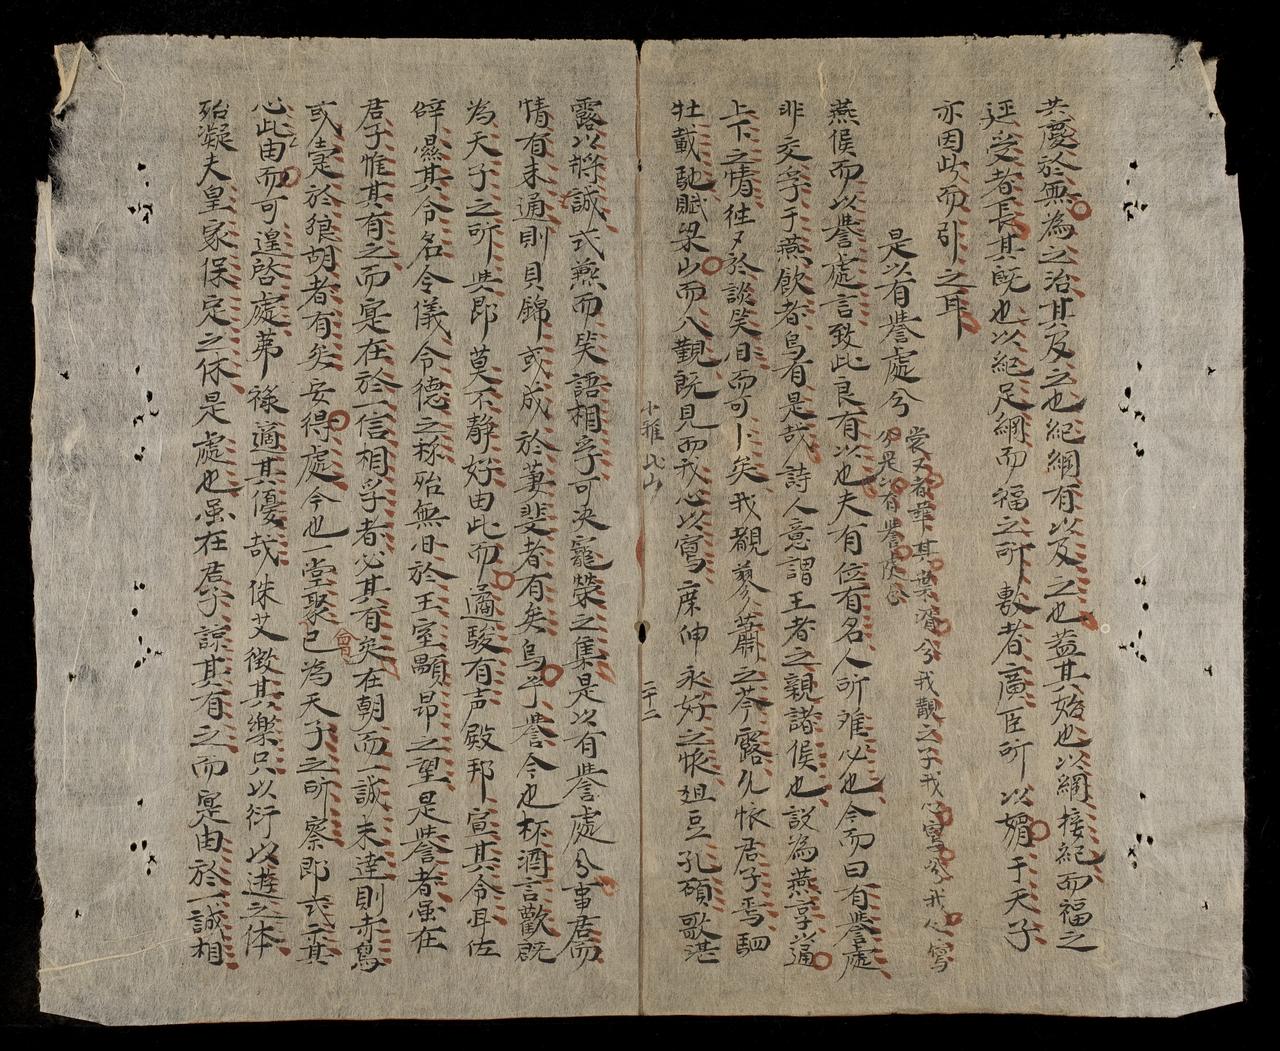 共慶於無為之治其及之也紀綱有以及之也蓋其始也以綱接紀而福之
廷受者長其既也以紀足綱而福之所敷者廣臣所以媚于天子
亦因此而引之耳
是以有譽處兮
裳又者華其葉湑兮我覯之子我心寫兮我心寫
兮是以有譽處兮
燕侯而以譽處言致此良有以也夫有位有名人所难必也今而曰有譽處
非交孚于燕飲者烏有是哉詩人意謂王者之親諸侯也設為燕享通
上下之情往夕於談笑間而可卜矣我覩蓼蕭之苓露允懷君子焉駟
牡載馳賦梁山而入覲既見而我心以寫席伸永好之懷俎豆孔碩歌湛
小雅此山
二十二
露以將誠式燕而笑語相孚可决寵榮之集是以有譽處兮事君而
情有未通則貝錦或成於萋斐者有矣烏乎譽今也杯酒言歡既
為天子之所與即莫不静好由此而遹駿有声殿邦宣其令耳佐
辟濕其令名令儀令德之称殆無間於王室顒昂之望是譽者虽在
君子惟其有之而寔在於一信相孚者必其有矣在朝而一誠未達則赤舄
或疐於狼胡者有矣安得處今也一堂聚已為天子之所察即式云其
會
心此由而可遑啓處茀祿適其優哉侏艾徵其樂只以衍以遊之体
殆凝夫皇家保定之休是處也虽在君子諒其有之而寔由於一誠相